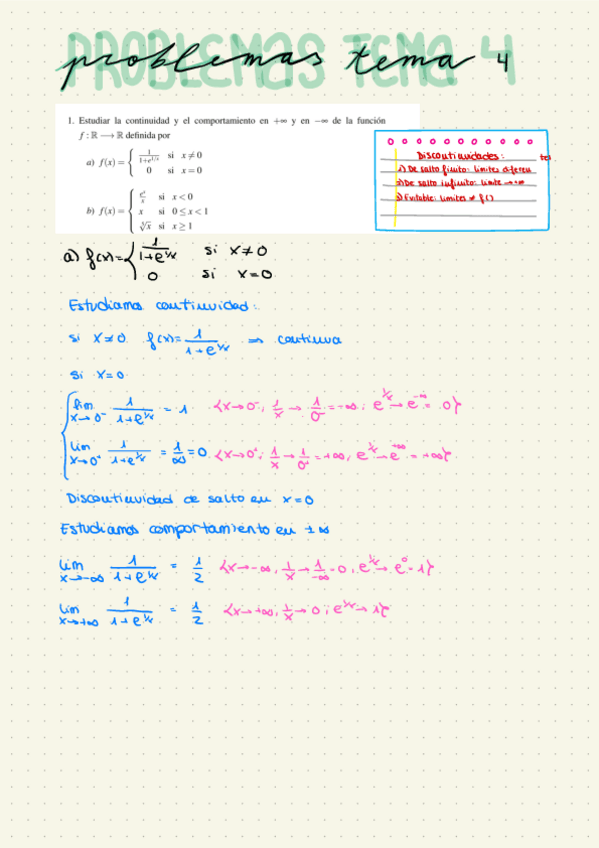 PROBLEMAS TEMA 4
problemas tema 4
1. Estudiar la continuidad y el comportamiento en +∞ y en −∞ de la función
f : ℝ → ℝ definida por
a) f(x) = { 1/(1+e^{1/x}) si x ≠ 0
0 si x = 0
b) f(x) = { e^x/x si x < 0
x si 0 ≤ x < 1
∛x si x ≥ 1
Discontinuidades:
1) De salto finito: límites diferen
tes
2) De salto infinito: límite →∞
3) Evitable: límites ≠ f()
a) f(x) = { 1/(1+e^{1/x}) si x ≠ 0
0 si x = 0
Estudiamos continuidad:
si x ≠ 0 f(x) = 1/(1+e^{1/x}) ⇒ continua
si x = 0
lim x→0⁻ 1/(1+e^{1/x}) = 1 {x→0⁻; 1/x → 1/0⁻ = −∞; e^{1/x} → e^{−∞} = 0}
lim x→0⁺ 1/(1+e^{1/x}) = 1/∞ = 0 {x→0⁺; 1/x → 1/0⁺ = +∞; e^{1/x} → e^{+∞} = +∞}
Discontinuidad de salto en x=0
Estudiamos comportamiento en ±∞
lim x→−∞ 1/(1+e^{1/x}) = 1/2 {x→−∞, 1/x → 1/−∞ − 0, e^{1/x} → e⁰ − 1}
lim x→+∞ 1/(1+e^{1/x}) = 1/2 {x→+∞, 1/x → 0; e^{1/x} → 1}